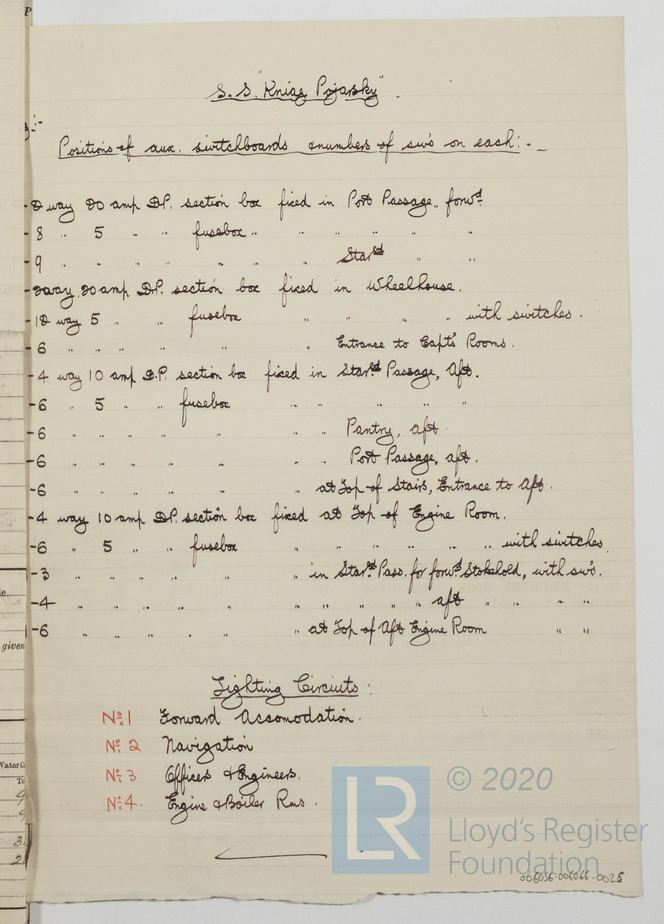 S.S. "Kniaz Pojarsky".
Positions of aux. switchboards & numbers of sw's on each:-
-2 way 20 amp D.P. section box fixed in Port Passage, forwd.
-8 " 5 " " fusebox " " " " " "
-9 " " " " " " " Stard " "
-2 way 20 amp D.P. section box fixed in Wheelhouse.
-12 way 5 " " fusebox " " " with switches.
-6 " " " " " " Entrance to Capt's Rooms.
-4 way 10 amp D.P. section box fixed in Stard Passage, Aft.
-6 " 5 " " fusebox " " " " "
-6 " " " " " " " Pantry, aft.
-6 " " " " " " " Port Passage, aft.
-6 " " " " " " at Top of Stairs, Entrance to Aft.
-4 way 10 amp D.P. section box fixed at Top of Engine Room.
-6 " 5 " " fusebox " " " " " " with switches
-3 " " " " " " in Stard Pass. for forwd Stokehold, with sw's.
-4 " " " " " " " " " " aft " " " "
-6 " " " " " " at Top of Aft Engine Room " "
Lighting Circuits:
No. 1 Forward Accomodation.
No. 2 Navigation
No. 3 Officers & Engineers.
No. 4. Engine & Boiler Rms.
given
Water
LR
© 2020
Lloyd's Register
Foundation
006056-006066-0025